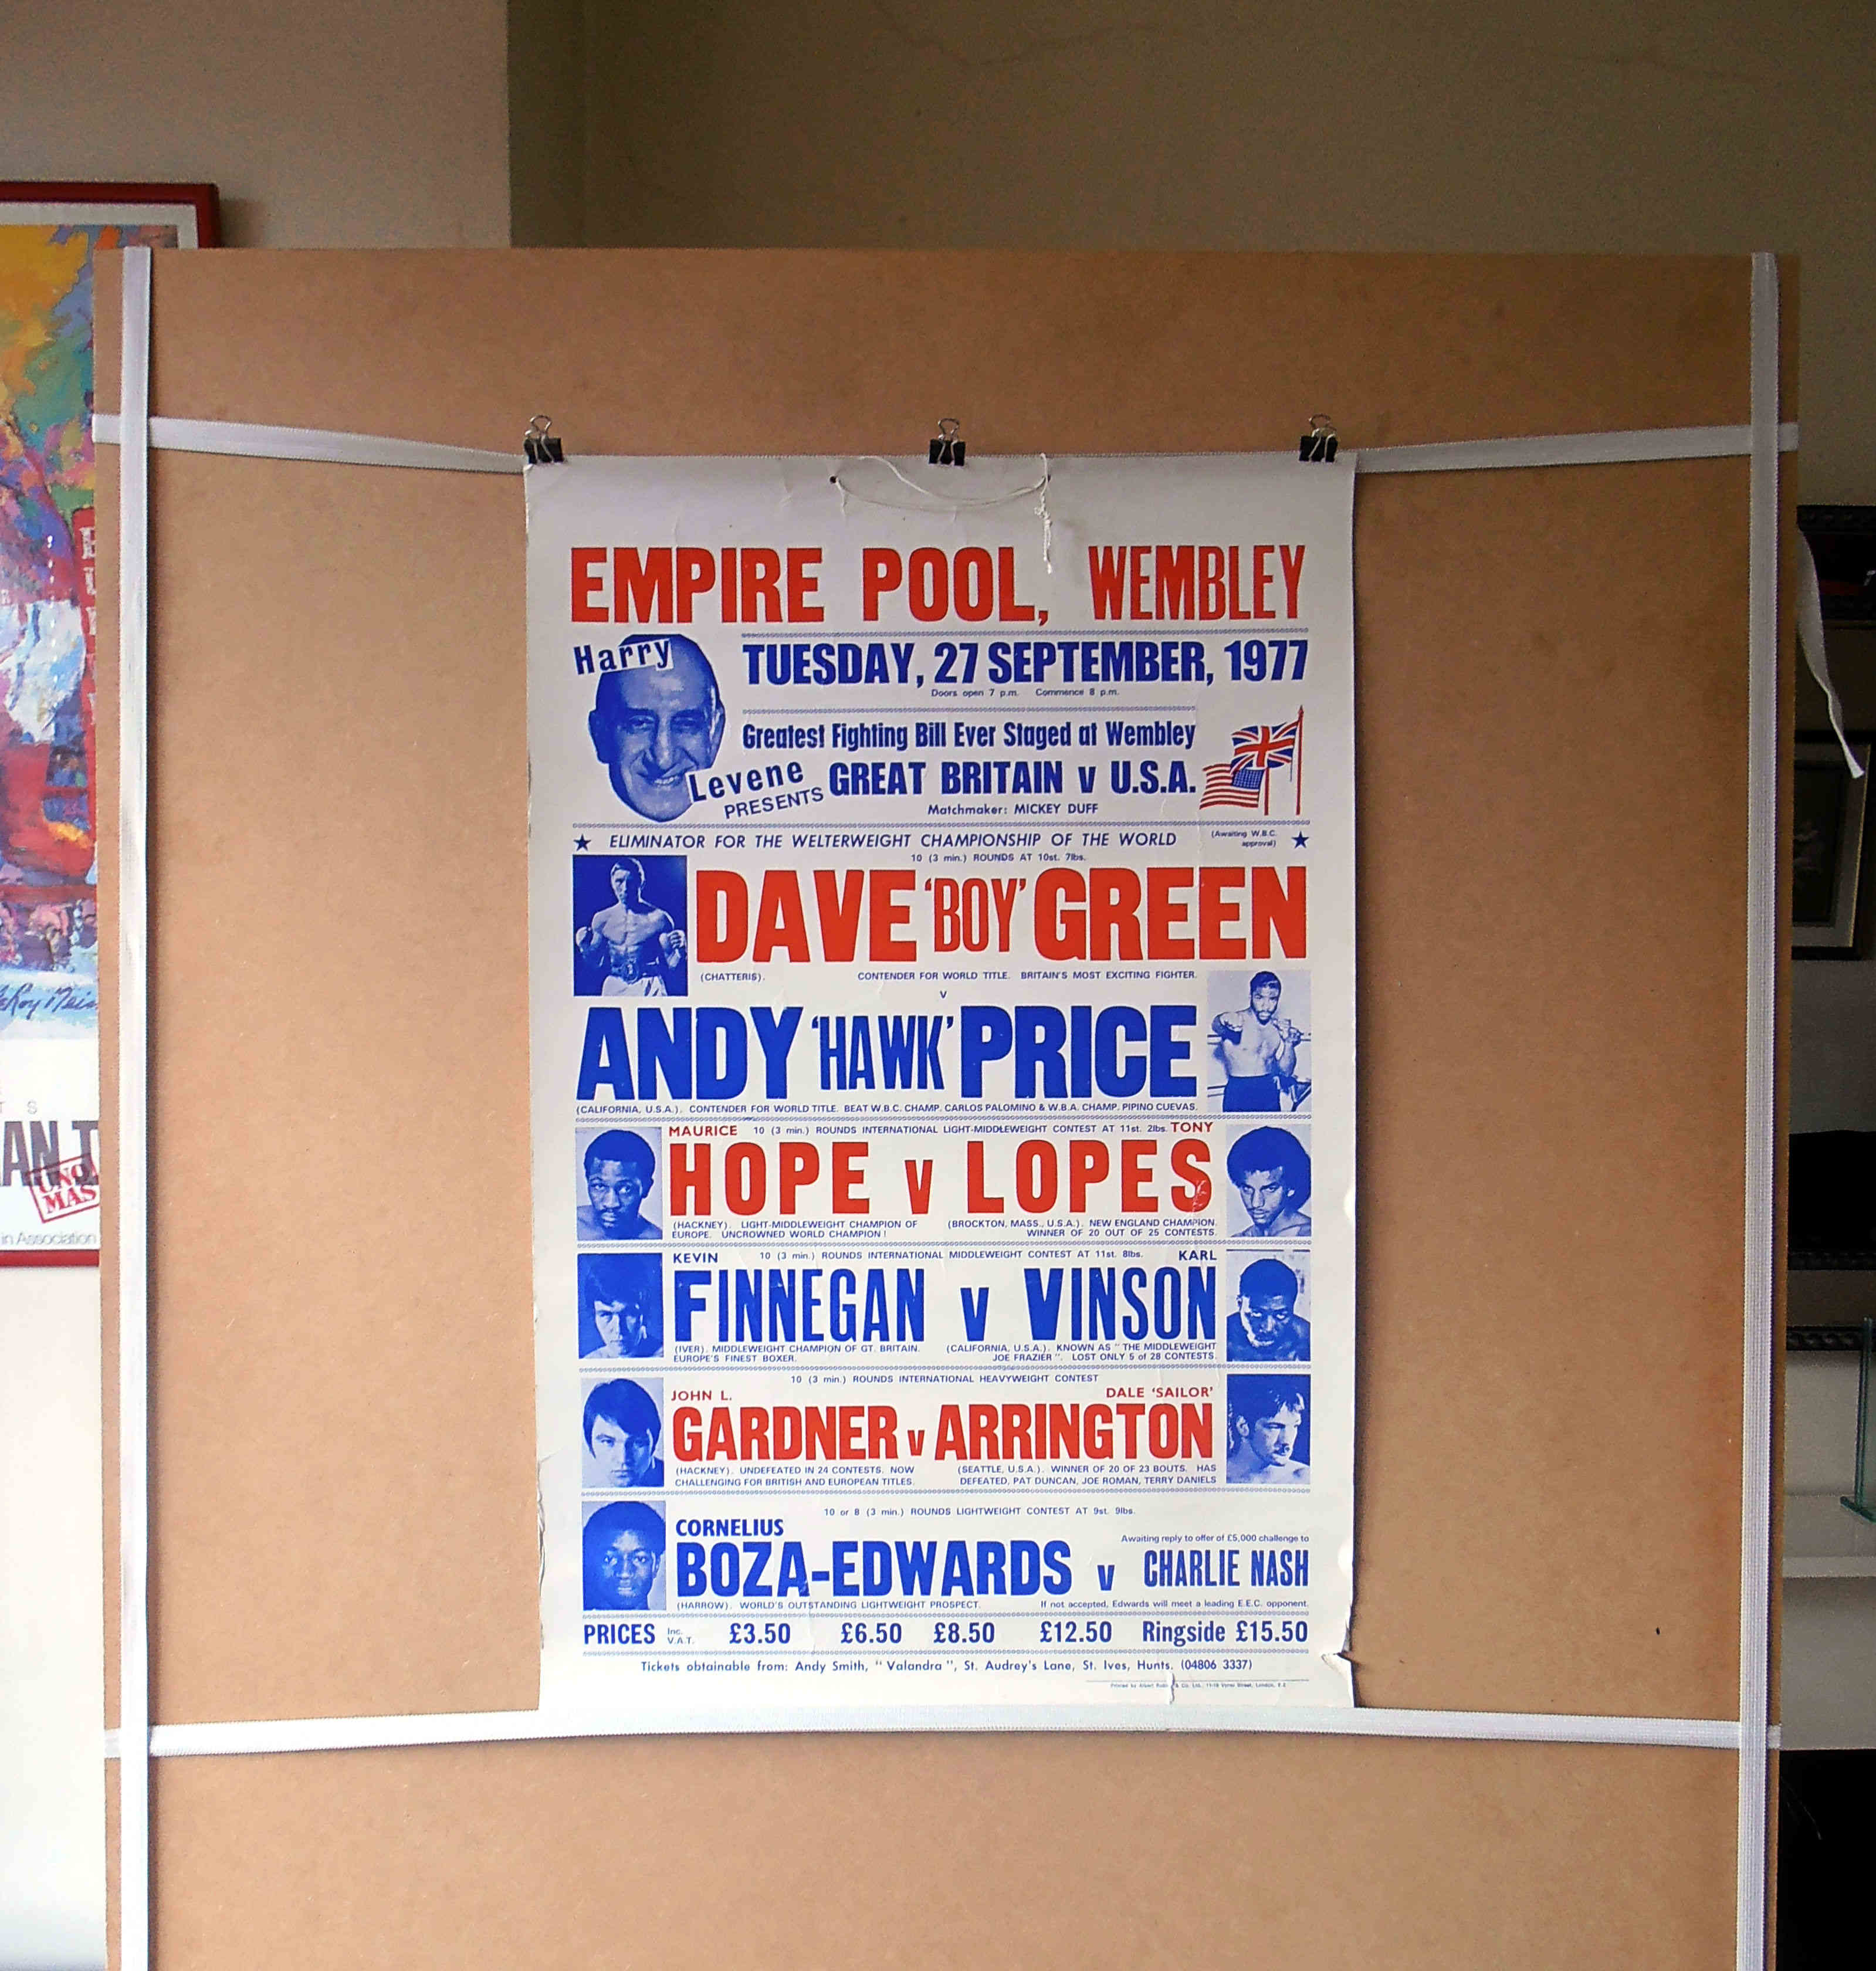 EMPIRE POOL, WEMBLEY
Harry
TUESDAY, 27 SEPTEMBER, 1977
Doors open 7 p.m. Commence 8 p.m.
Greatest Fighting Bill Ever Staged at Wembley
Levene
PRESENTS
GREAT BRITAIN v U.S.A.
Matchmaker: MICKEY DUFF
★ ELIMINATOR FOR THE WELTERWEIGHT CHAMPIONSHIP OF THE WORLD (Awaiting W.B.C. approval) ★
10 (3 min.) ROUNDS AT 10st. 7lbs.
DAVE 'BOY' GREEN
(CHATTERIS). CONTENDER FOR WORLD TITLE. BRITAIN'S MOST EXCITING FIGHTER.
v
ANDY 'HAWK' PRICE
(CALIFORNIA, U.S.A.). CONTENDER FOR WORLD TITLE. BEAT W.B.C. CHAMP. CARLOS PALOMINO & W.B.A. CHAMP. PIPINO CUEVAS.
MAURICE 10 (3 min.) ROUNDS INTERNATIONAL LIGHT-MIDDLEWEIGHT CONTEST AT 11st. 2lbs. TONY
HOPE v LOPES
(HACKNEY). LIGHT-MIDDLEWEIGHT CHAMPION OF
EUROPE. UNCROWNED WORLD CHAMPION!
(BROCKTON, MASS., U.S.A.). NEW ENGLAND CHAMPION.
WINNER OF 20 OUT OF 25 CONTESTS.
KEVIN 10 (3 min.) ROUNDS INTERNATIONAL MIDDLEWEIGHT CONTEST AT 11st. 8lbs. KARL
FINNEGAN v VINSON
(IVER). MIDDLEWEIGHT CHAMPION OF GT. BRITAIN.
EUROPE'S FINEST BOXER.
(CALIFORNIA, U.S.A.). KNOWN AS "THE MIDDLEWEIGHT
JOE FRAZIER". LOST ONLY 5 of 28 CONTESTS.
10 (3 min.) ROUNDS INTERNATIONAL HEAVYWEIGHT CONTEST
JOHN L. DALE 'SAILOR'
GARDNER v ARRINGTON
(HACKNEY). UNDEFEATED IN 24 CONTESTS. NOW
CHALLENGING FOR BRITISH AND EUROPEAN TITLES.
(SEATTLE, U.S.A.). WINNER OF 20 OF 23 BOUTS. HAS
DEFEATED, PAT DUNCAN, JOE ROMAN, TERRY DANIELS
10 or 8 (3 min.) ROUNDS LIGHTWEIGHT CONTEST AT 9st. 9lbs.
CORNELIUS
Awaiting reply to offer of £5,000 challenge to
BOZA-EDWARDS v CHARLIE NASH
(HARROW). WORLD'S OUTSTANDING LIGHTWEIGHT PROSPECT. If not accepted, Edwards will meet a leading E.E.C. opponent.
PRICES Inc. V.A.T. £3.50 £6.50 £8.50 £12.50 Ringside £15.50
Tickets obtainable from: Andy Smith, "Valandra", St. Audrey's Lane, St. Ives, Hunts. (04806 3337)
AN T
UNO
MAS
in Association